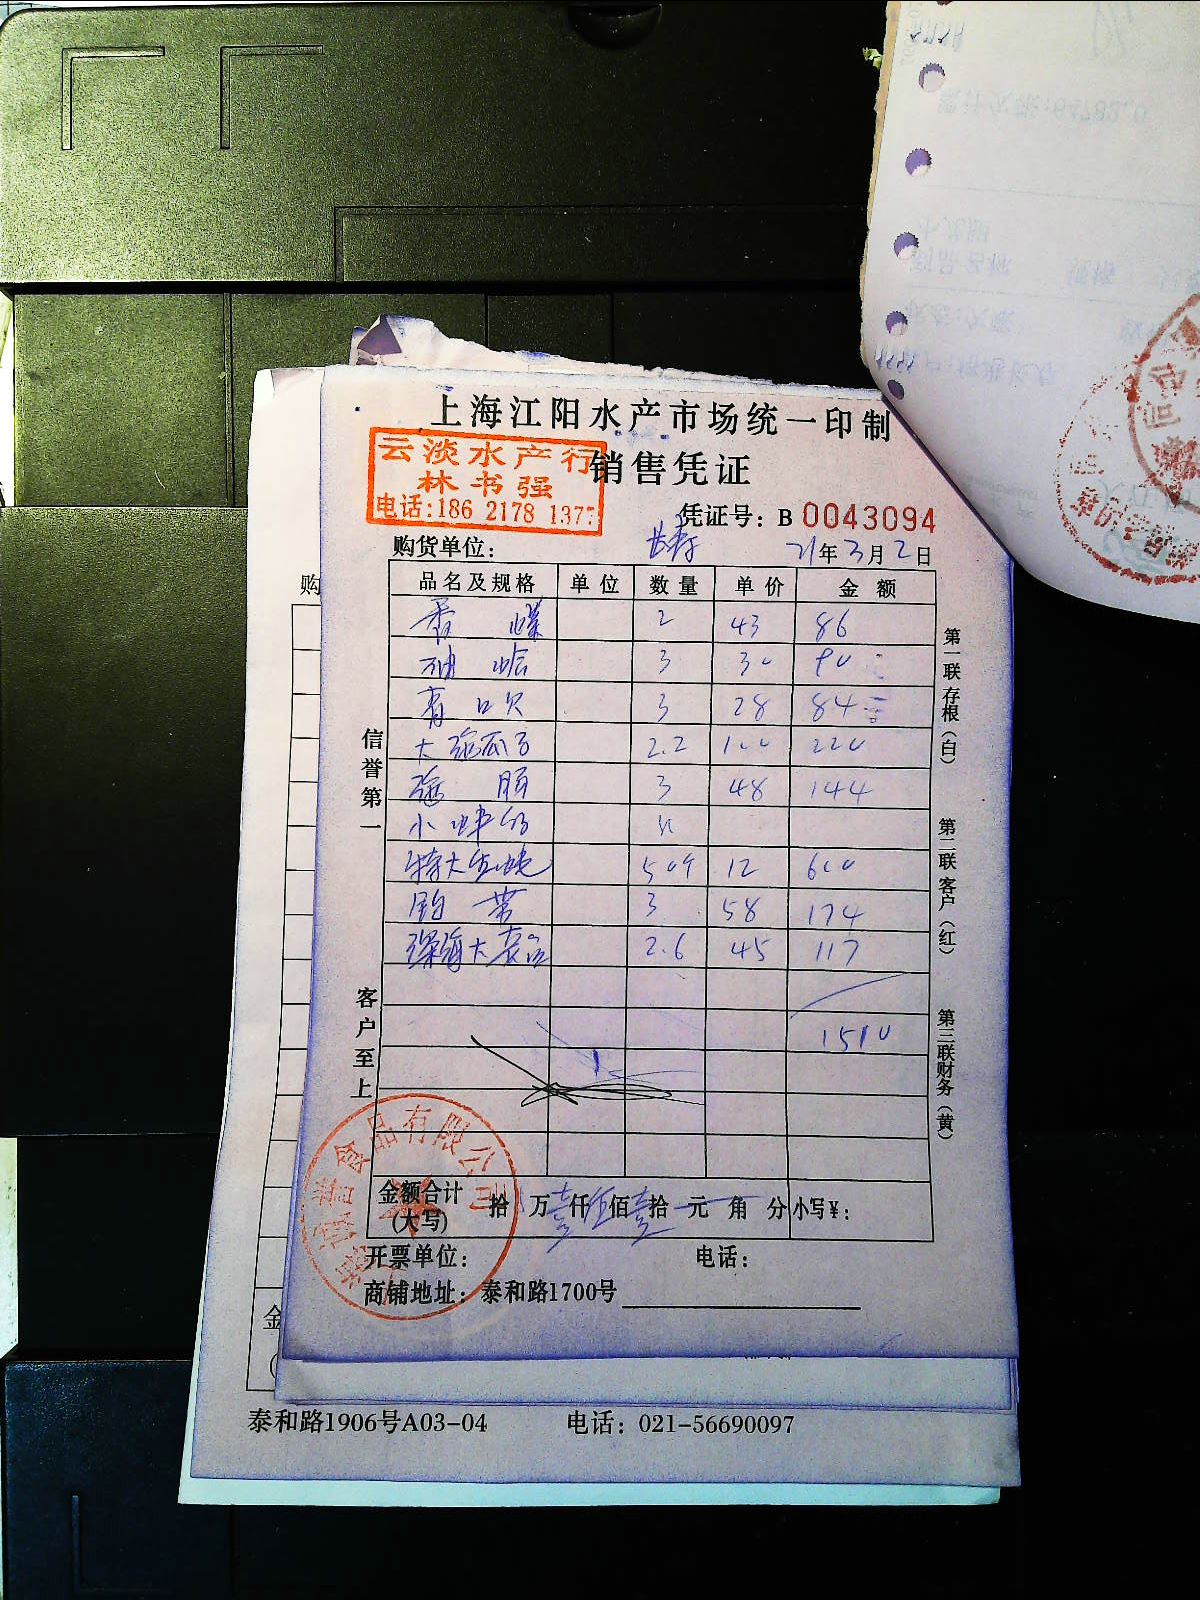 上海江阳水产市场统一印制
云淡水产行
林书强
电话:186 2178 1377
销售凭证
凭证号: B 0043094
购货单位: 长寿 21年3月2日
品名及规格 单位 数量 单价 金额
香螺 2 43 86
油蛤 3 30 90
青口贝 3 28 84
大海瓜子 2.2 100 220
海肠 3 48 144
小
特大生蚝 50个 12 600
3 58 174
深海大 2.6 45 117
1510
金额合计
(大写) 拾 万 壹 仟 伍 佰 壹 拾 元 角 分 小写¥:
开票单位: 电话:
商铺地址: 泰和路1700号
信誉第一
客户至上
第一联存根(白)
第二联客户(红)
第三联财务(黄)
食品有限公司
购
金
泰和路1906号A03-04 电话: 021-56690097